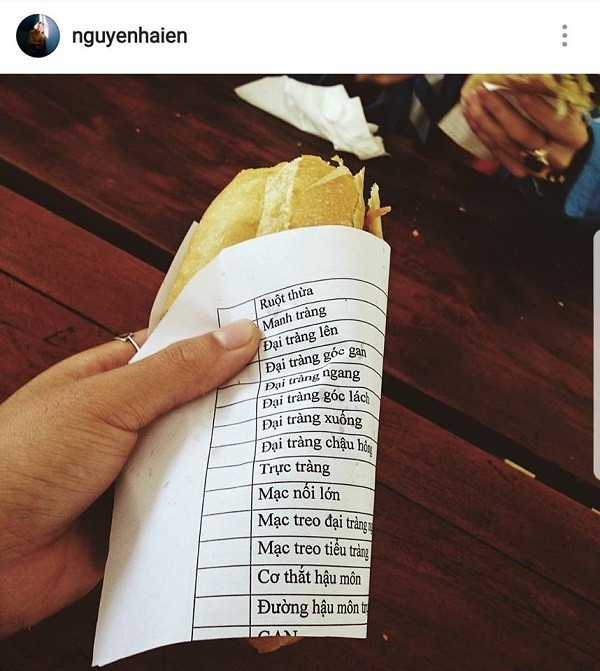 nguyenhaien
Ruột thừa
Manh tràng
Đại tràng lên
Đại tràng góc gan
Đại tràng ngang
Đại tràng góc lách
Đại tràng xuống
Đại tràng chậu hông
Trực tràng
Mạc nối lớn
Mạc treo đại tràng
Mạc treo tiểu tràng
Cơ thắt hậu môn
Đường hậu môn
GAN